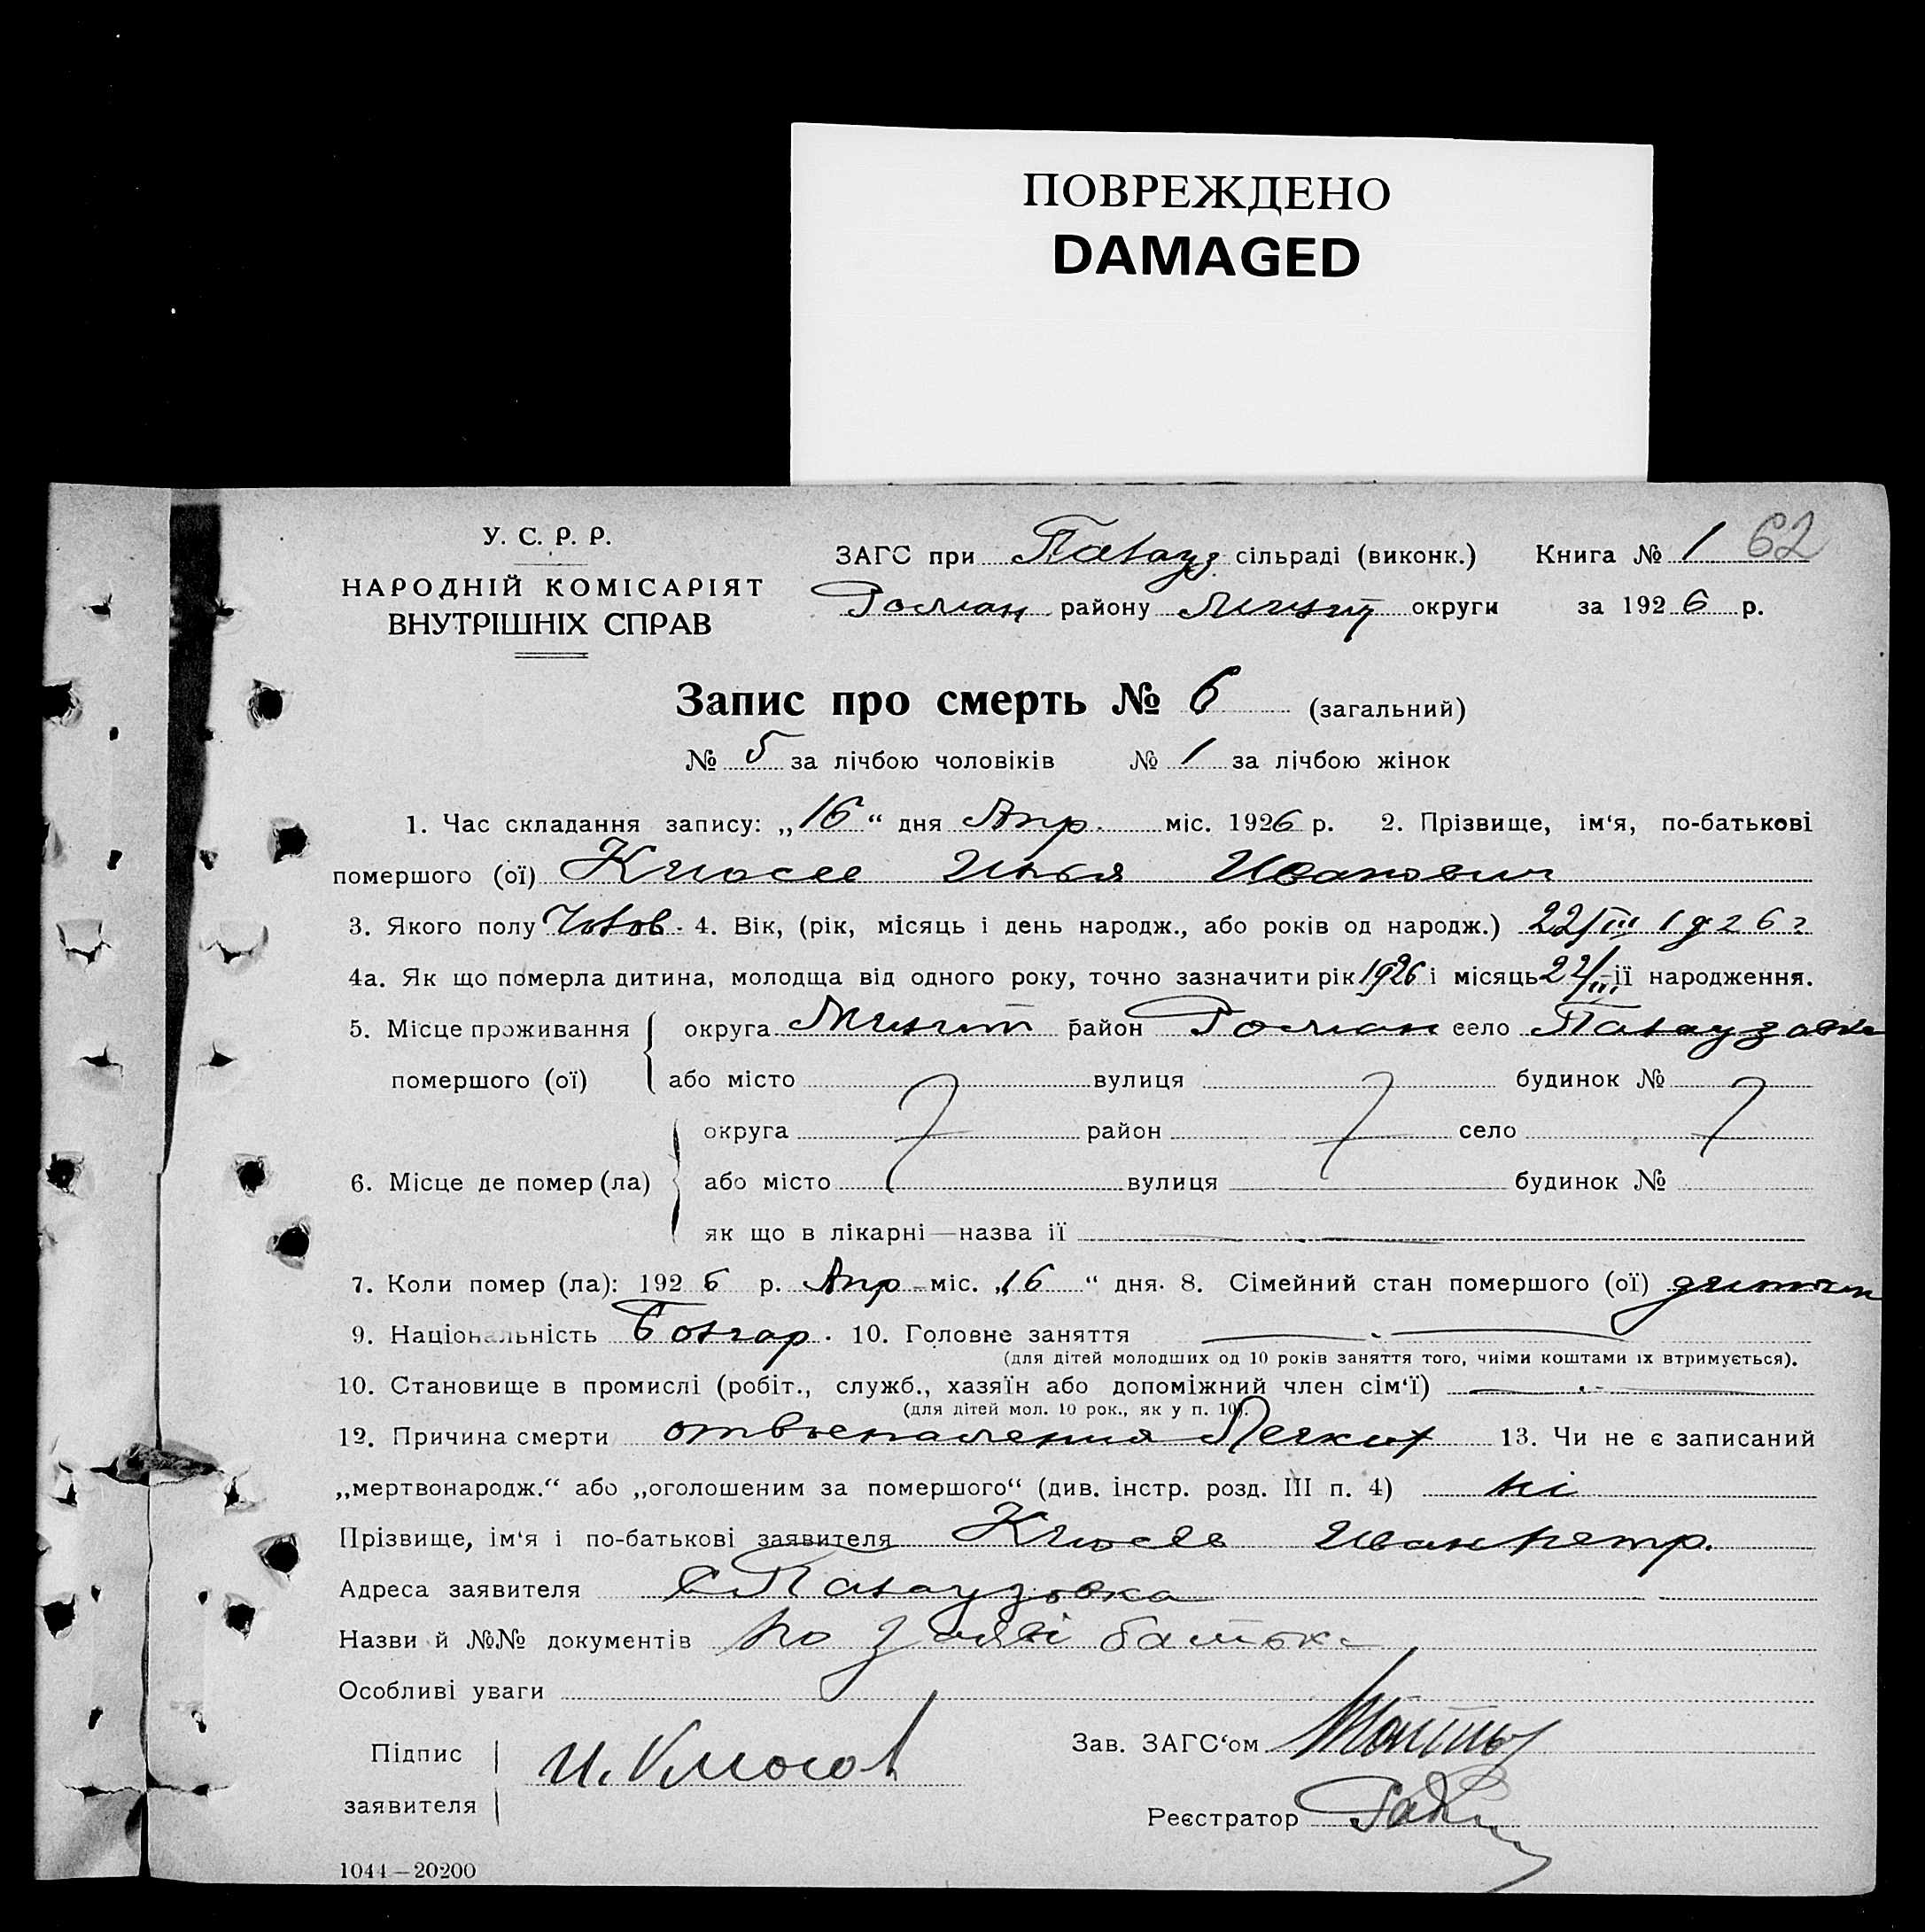 ПОВРЕЖДЕНО
DAMAGED
У. С. Р. Р.
НАРОДНІЙ КОМІСАРІЯТ
ВНУТРІШНІХ СПРАВ
ЗАГС при Палауз. сільраді (виконк.) Книга № 1 62
Роман района Мелит округи за 1926 р.
Запис про смерть № 6 (загальний)
№ 5 за лічбою чоловіків № 1 за лічбою жінок
1. Час складання запису: „16“ дня Апр. міс. 1926 р. 2. Прізвище, ім‘я, по-батькові
помершого (ої) Клюсев Илья Иванович
3. Якого полу Чолов. 4. Вік, (рік, місяць і день народж., або років од народж.) 22/III 1926 г
4а. Як що померла дитина, молодща від одного року, точно зазначити рік 1926 і місяць 22/III її народження.
5. Місце проживання помершого (ої) округа Мелит район Роман село Палаузовка
або місто вулиця будинок №
6. Місце де помер (ла) округа район село
або місто вулиця будинок №
як що в лікарні—назва її
7. Коли помер (ла): 1926 р. Апр міс. „16“ дня. 8. Сімейний стан помершого (ої)
9. Національність Болгар. 10. Головне заняття
(для дітей молодших од 10 років заняття того, чиїми коштами їх втримується).
10. Становище в промислі (робіт., служб., хазяїн або допоміжний член сім‘ї)
(для дітей мол. 10 рок., як у п. 10).
12. Причина смерти от воспаления Легких 13. Чи не є записаний
„мертвонародж.“ або „оголошеним за помершого“ (див. інстр. розд. III п. 4) ні
Прізвище, ім‘я і по-батькові заявителя Клюсев Иван петр.
Адреса заявителя с Палаузовка
Назви й №№ документів по заяві батька
Особливі уваги
Підпис заявителя
Зав. ЗАГС‘ом
Реєстратор
1044—20200